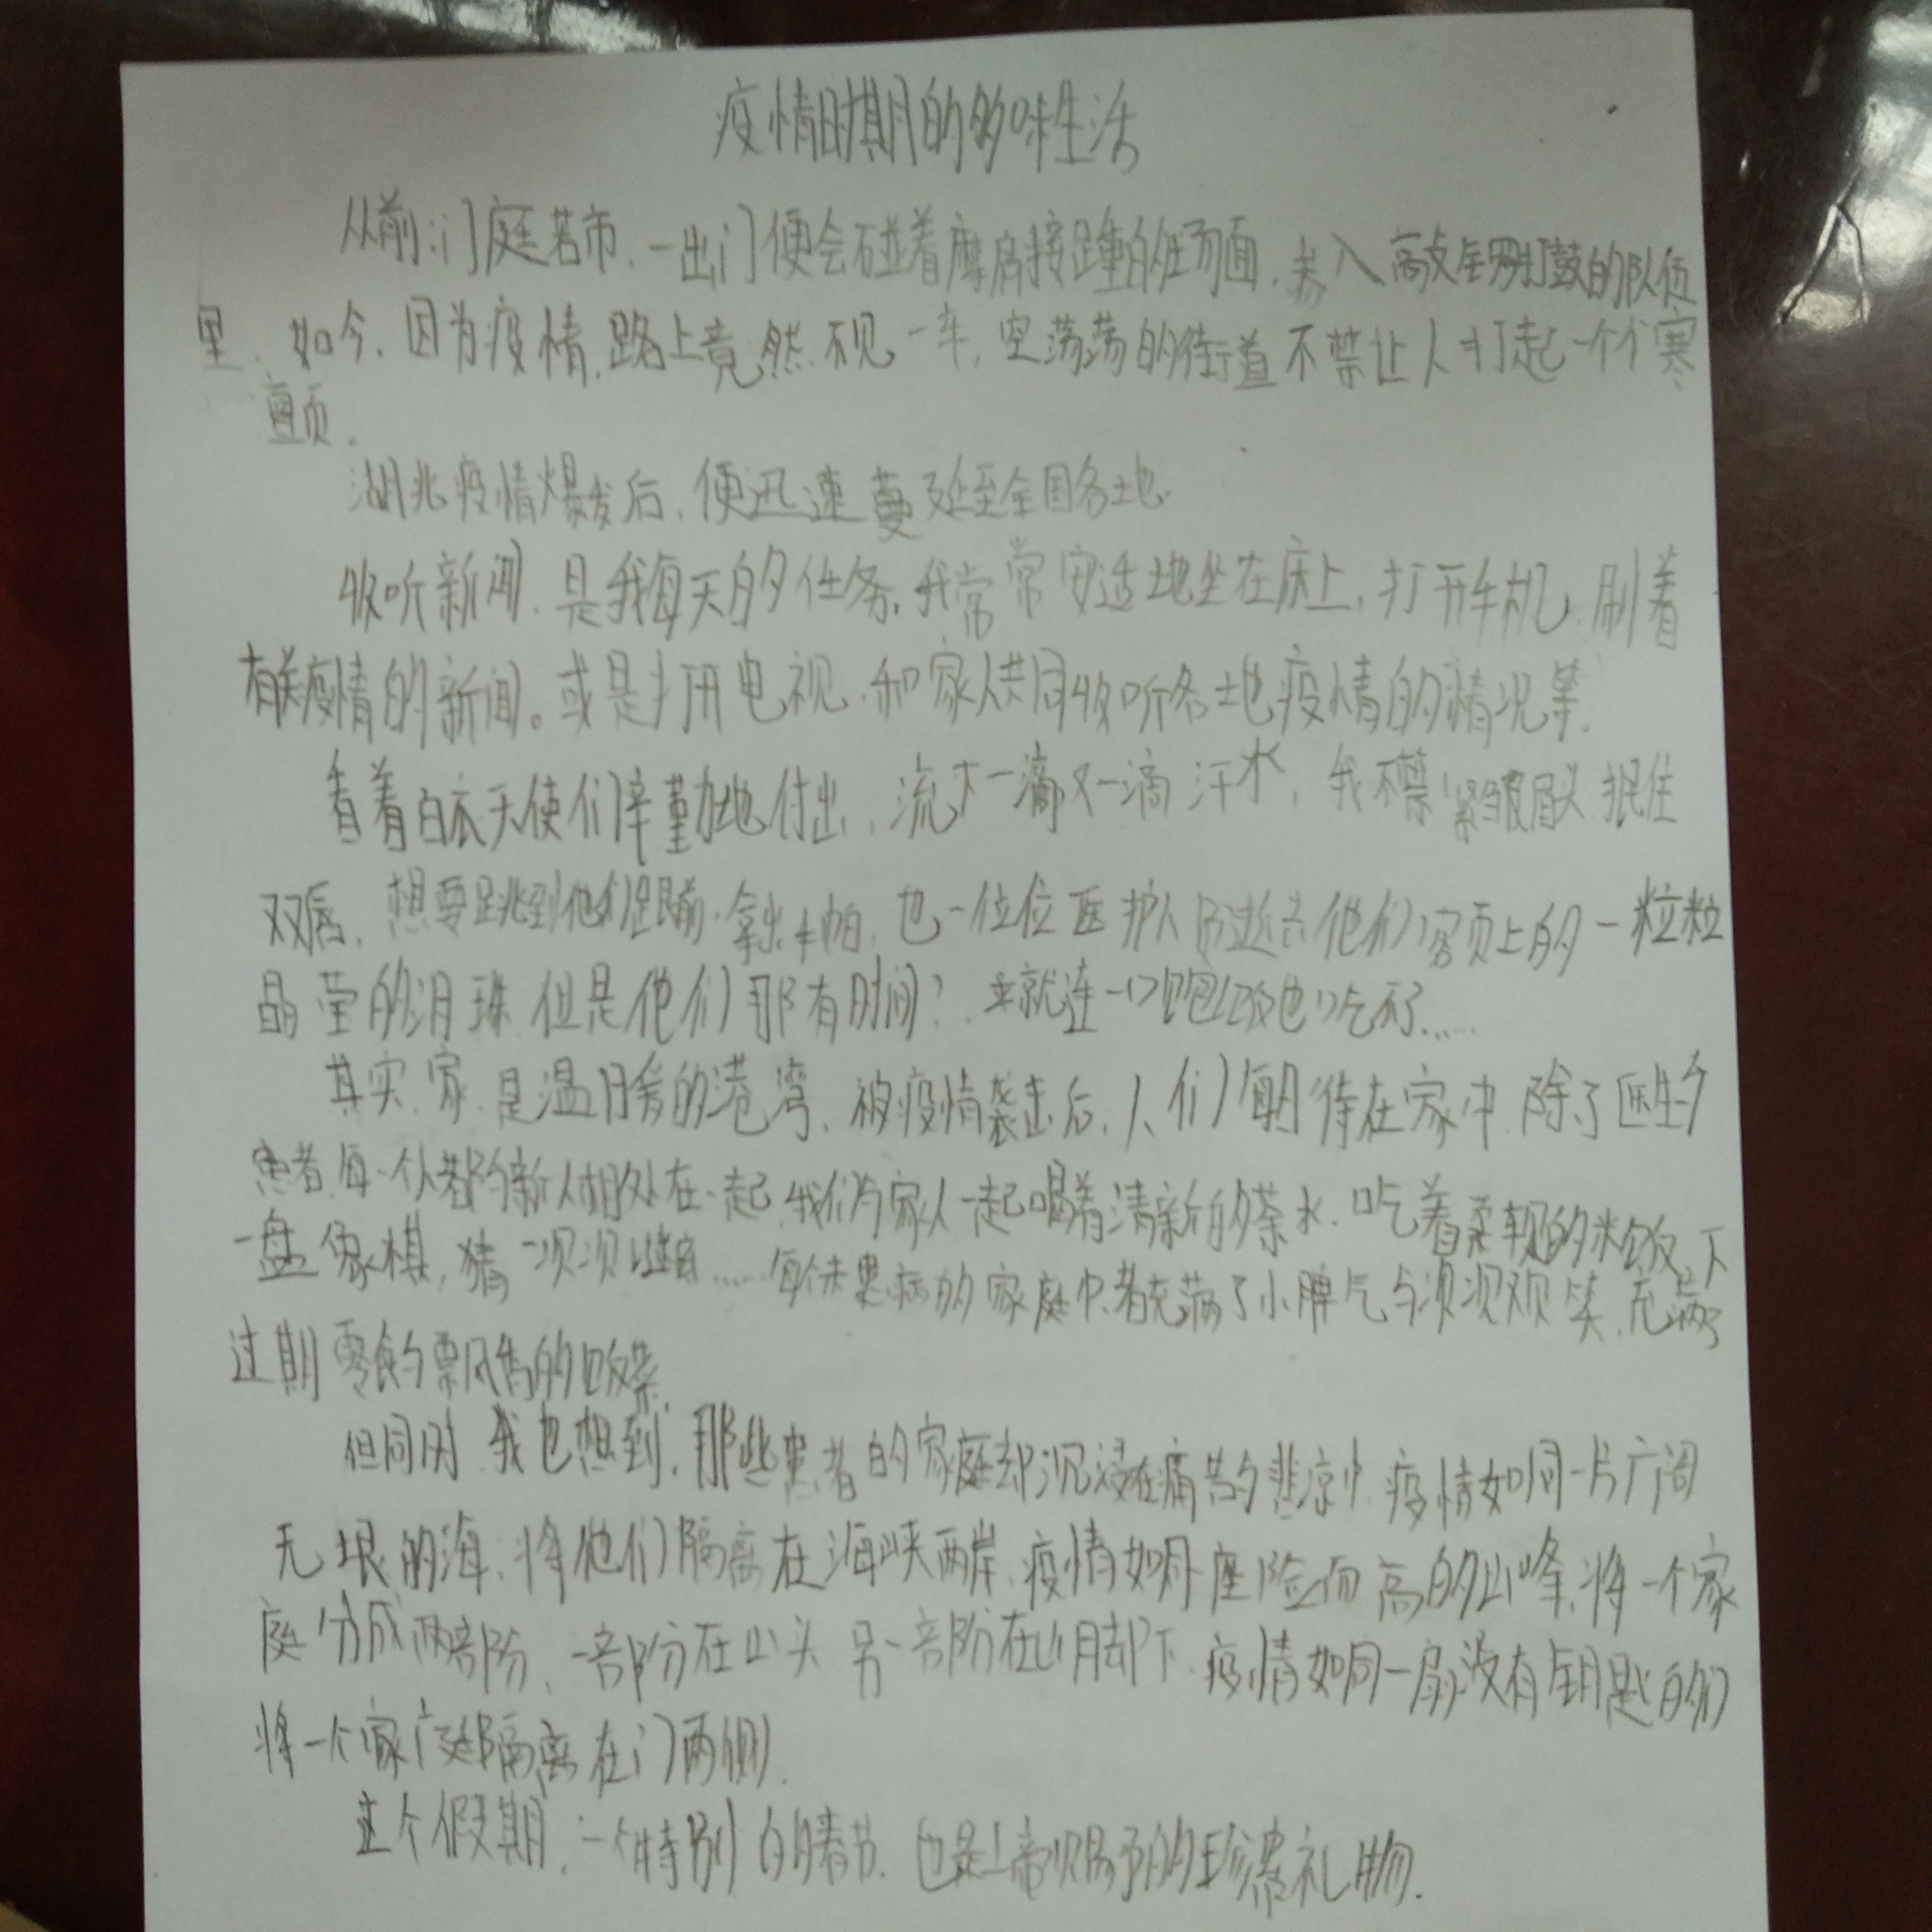 疫情时期的多味生活
从前,门庭若市,一出门便会碰着摩肩接踵的场面,卷入高敲锣打鼓的队伍
里,如今,因为疫情,路上竟然不见一车,空荡荡的街道不禁让人打起一个个寒
颤.
湖北疫情爆发后,便迅速蔓延至全国各地.
收听新闻,是我每天的任务,我常常安适地坐在床上,打开手机,刷着
有关疫情的新闻。或是打开电视,和家人共同收听各地疫情的情况等.
看着白衣天使们辛勤地付出,流下一滴又一滴汗水,我不禁紧皱眉头抿住
双唇,想要跳到他们跟前,拿出手帕,也一位位医护人员逝去他们额上的一粒粒
晶莹的泪珠,但是他们那有时间?就连一口饱饭也吃不了......
其实,家,是温暖的港湾,被疫情袭击后,人们每日待在家中,除了医生与
患者,每一个人都与新人相处在一起,我们与家人一起喝着清新的茶水,吃着柔软的米饭,下
一盘象棋,猜一次次谜语......每个未患病的家庭中,都充满了小脾气与一次次欢笑,充满了
过期零食与飘香的饭菜.
但同时,我也想到,那些患者的家庭却沉浸在痛苦与悲凉中,疫情如同一片广阔
无垠的海,将他们隔离在海峡两岸,疫情如同一座险而高的山峰,将一个家
庭分成两部份,一部份在山头,另一部份在山脚下,疫情如同一扇没有钥匙的门
将一个家庭隔离在门两侧.
这个假期,一个特别的春节,也是上帝赐予的珍贵礼物.